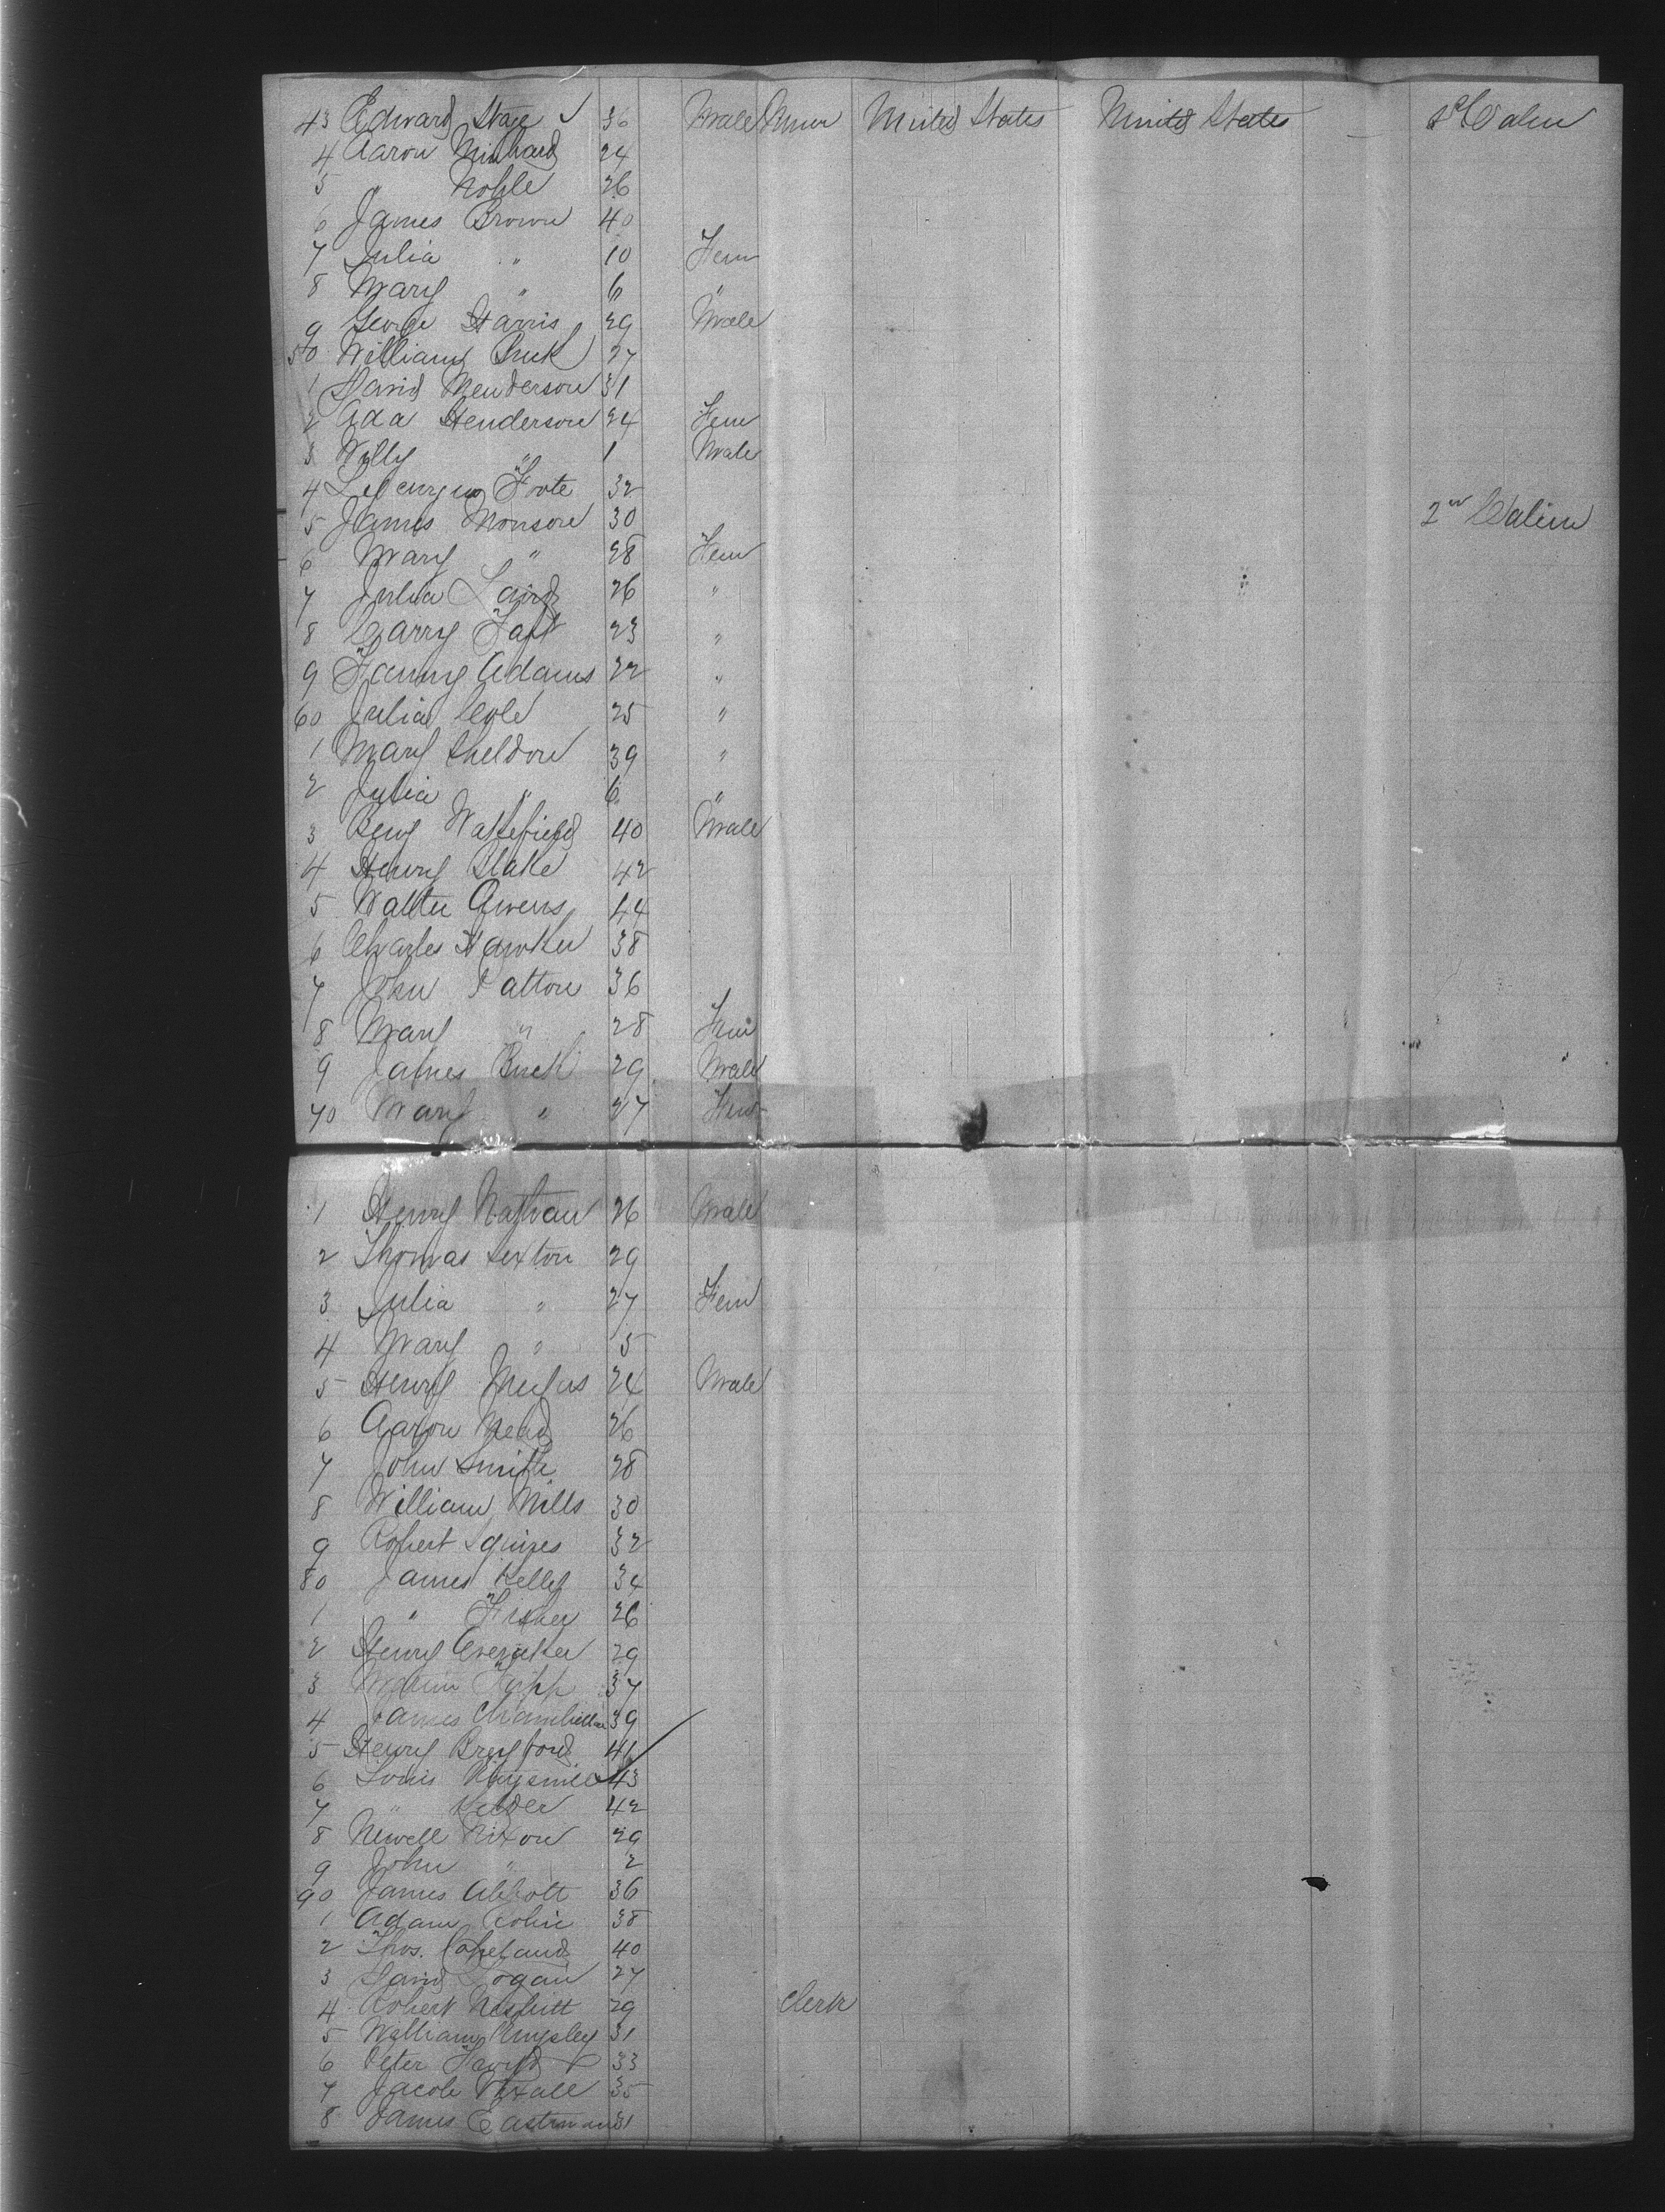 43 Edward Stage ✓ 36 Male Miner United States United States — 1st Cabin
4 Aaron Minhard 24
5 " Noble 26
6 James Brown 40
7 Julia " 10 Fem
8 Mary " 6 "
9 George Harris 29 Male
50 William Buck 27
1 David Menderson 31
2 Ada Henderson 24 Fem
3 Willy " 1 Male
4 Foote 32
5 James Monson 30 2nd Cabin
6 Mary " 28 Fem
7 Julia Laird 26 "
8 Carry Taft 23 "
9 Fanny Adams 22 "
60 Julia Cole 25 "
1 Mary Sheldon 39 "
2 Julia " 6 "
3 Benj Wakefield 40 Male
4 Henry Blake 42
5 Walter Owens 44
6 Charles Hawker 38
7 John Patton 36
8 Mary " 28 Fem
9 James Buck 29 Male
70 Mary " 27 Fem
1 Henry Nathan 26 Male
2 Thomas Sexton 29
3 Julia " 27 Fem
4 Mary " 5
5 Henry 24 Male
6 Aaron Mead 26
7 John Smith 28
8 William Mills 30
9 Robert Squires 32
80 James Kelley 34
1 " Fisher 26
2 Henry 29
3 Tripp 37
4 James Chamberlin 39
5 Henry 41
6 Louis 43
7 " 42
8 Newell Nixon 29
9 John " 2
90 James Abbott 36
1 Adam 38
2 Thos. Copeland 40
3 David Logan 27
4 Robert Nesbitt 29 Clerk
5 William Kingsley 31
6 Peter 33
7 Jacob 35
8 James Eastman 31